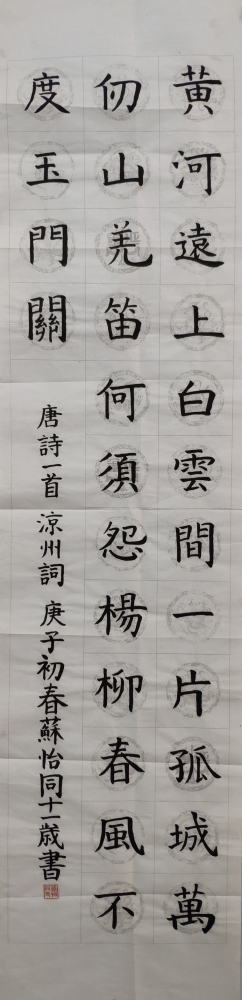 黃河遠上白雲間一片孤城萬
仞山羌笛何須怨楊柳春風不
度玉門關
唐詩一首 涼州詞 庚子初春蘇怡同十一歲書